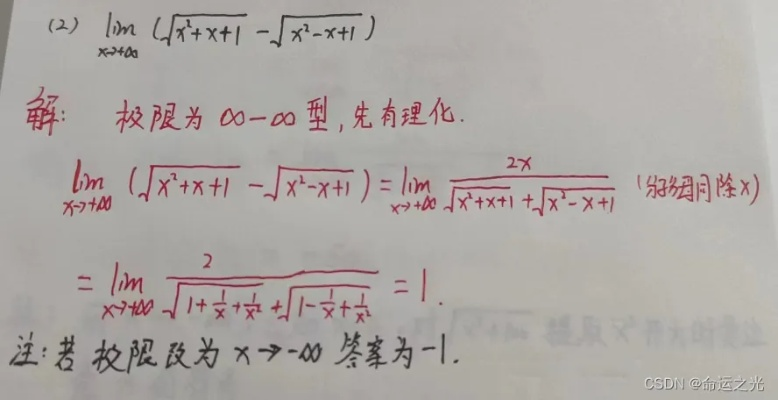 (2) lim x→+∞ (√(x²+x+1) - √(x²-x+1))
解: 极限为 ∞-∞ 型, 先有理化.
lim x→+∞ (√(x²+x+1) - √(x²-x+1)) = lim x→+∞ 2x / (√(x²+x+1) + √(x²-x+1)) (分子分母同除x)
= lim x→+∞ 2 / (√(1+1/x+1/x²) + √(1-1/x+1/x²)) = 1.
注: 若极限改为 x→-∞ 答案为 -1.
CSDN @命运之光